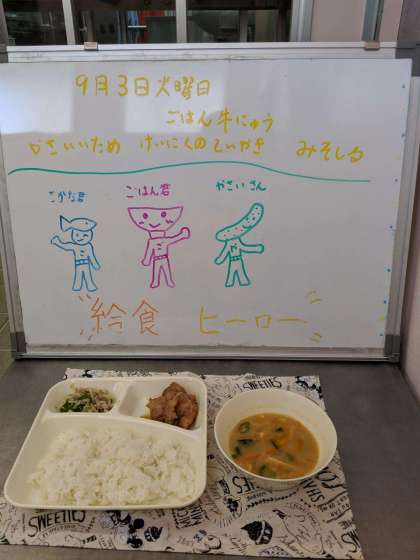 9月3日火曜日
ごはん牛にゅう
やさいいため けいにくのてりやき みそしる
さかな君 ごはん君 やさいさん
給食 ヒーロー
SWEETIES
SWEETIES